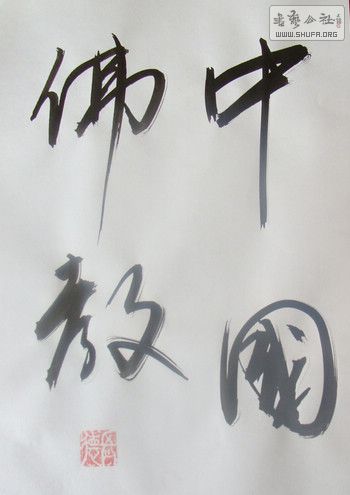 中國
佛教
书艺公社
WWW.SHUFA.ORG